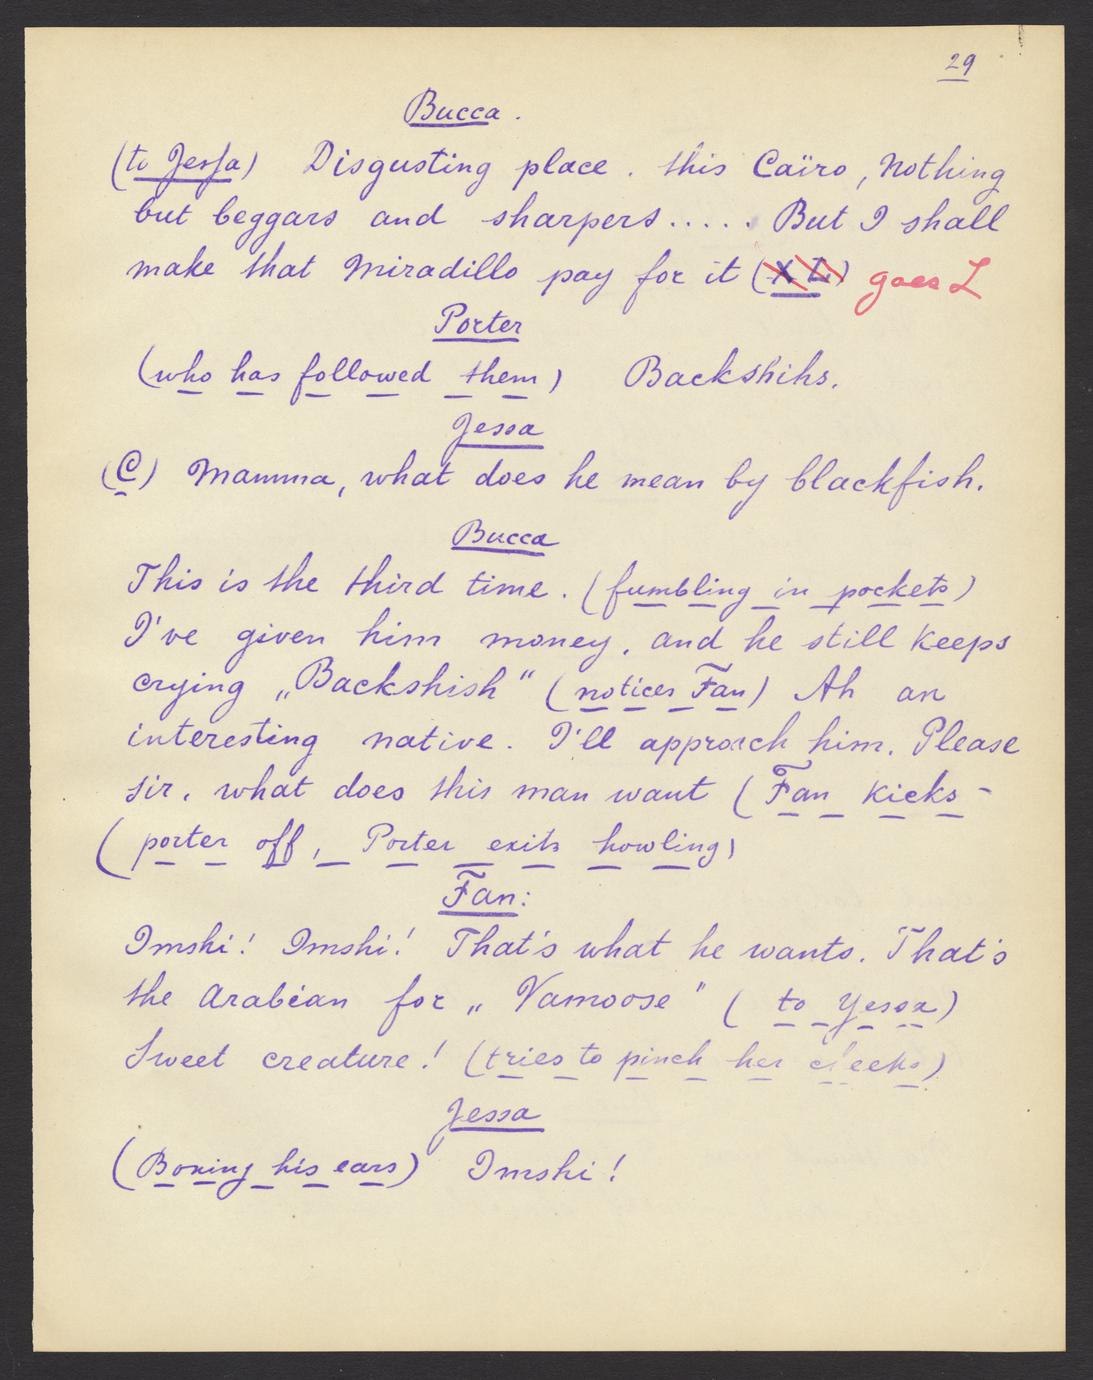 29
Bucca.
(to Jessa) Disgusting place. this Caïro, nothing
but beggars and sharpers..... But I shall
make that Miradillo pay for it (X L.) goes L
Porter
(who has followed them) Backshihs.
Jessa
(C) Mamma, what does he mean by blackfish.
Bucca
This is the third time. (fumbling in pockets)
I've given him money, and he still keeps
crying „Backshish" (notices Fan) Ah an
interesting native. I'll approach him. Please
sir, what does this man want (Fan kicks -
(porter off, Porter exits howling)
Fan:
Imshi! Imshi! That's what he wants. That's
the Arabian for „Vamoose" (to Yessa)
Sweet creature! (tries to pinch her cheeks)
Jessa
(Boxing his ears) Imshi!